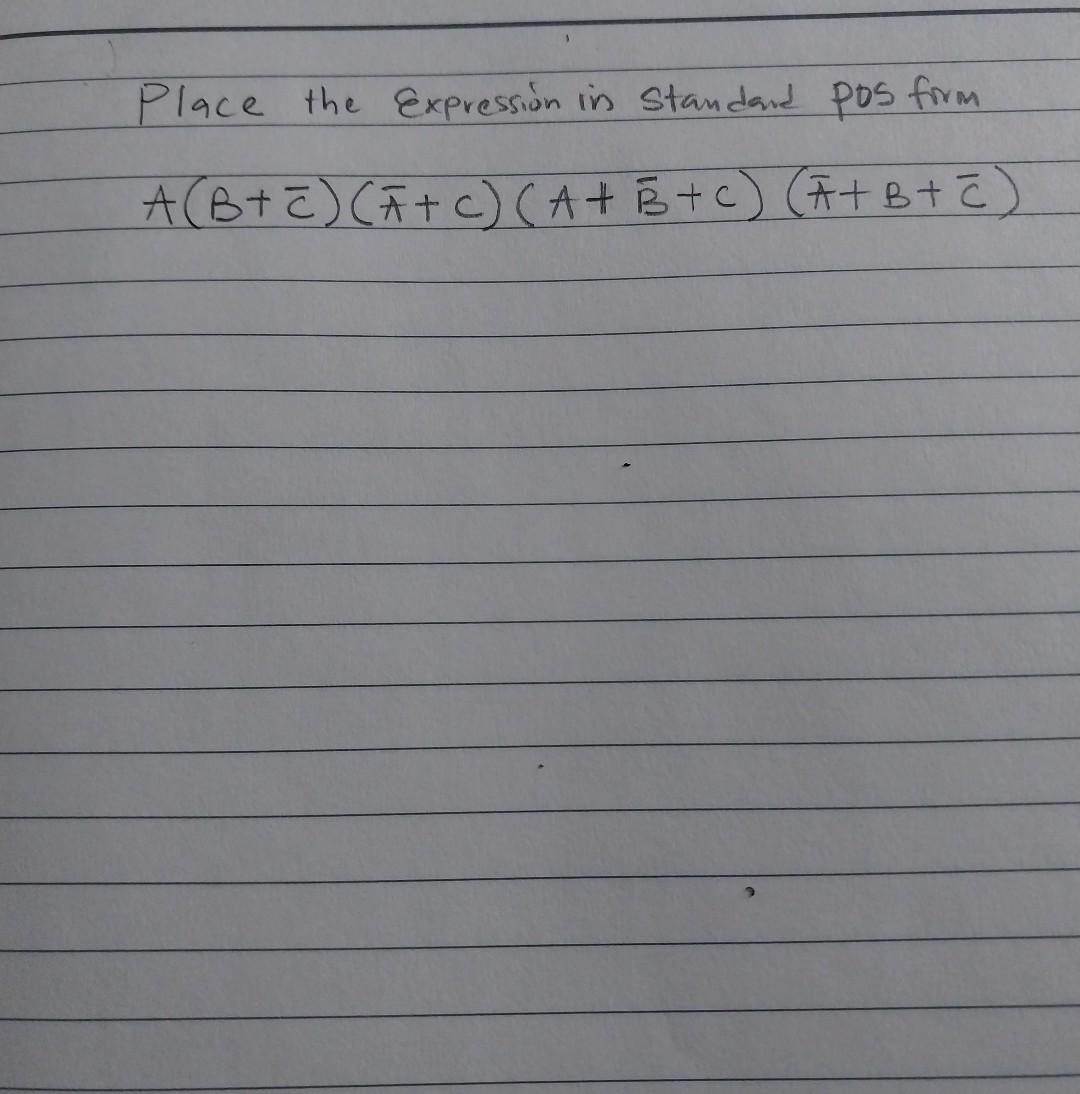 Place the Expression in Standard POS form
A(B+C̅)(A̅+C)(A+B̅+C)(A̅+B+C̅)